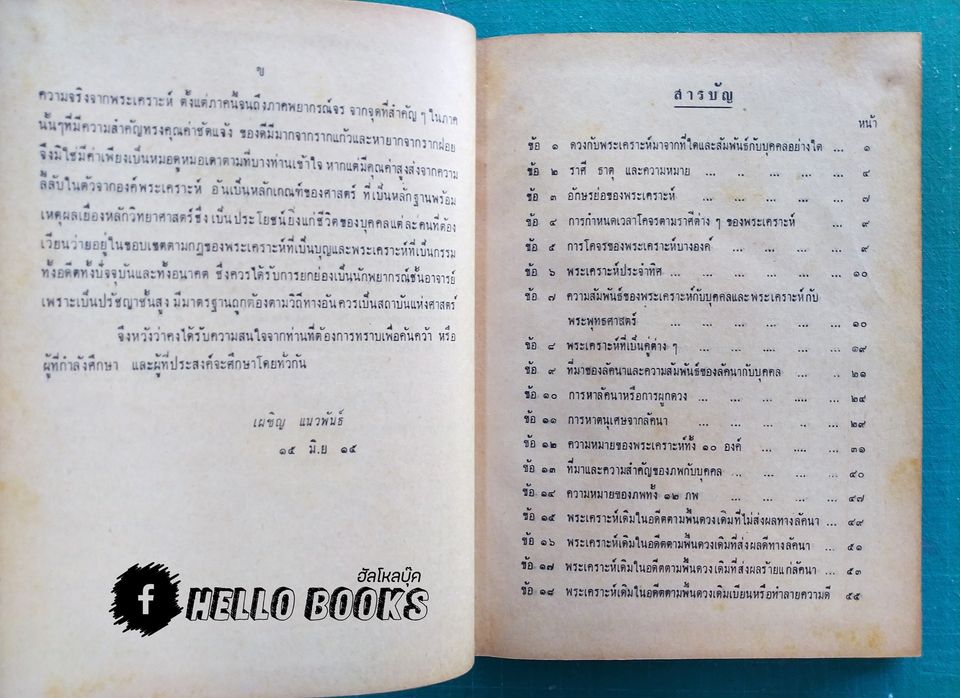 ข
ความจริงจากพระเคราะห์ ตั้งแต่ภาคนี้จนถึงภาคพยากรณ์จร จากจุดที่สำคัญ ๆ ในภาค
นั้นๆที่มีความสำคัญทรงคุณค่าชัดแจ้ง ของดีมีมากจากรากแก้วและหายากจากรากฝอย
จึงมิใช่มีค่าเพียงเป็นหมอดูหมอเดาตามที่บางท่านเข้าใจ หากแต่มีคุณค่าสูงส่งจากความ
ลี้ลับในตัวจากองค์พระเคราะห์ อันเป็นหลักเกณฑ์ของศาสตร์ ที่เป็นหลักฐานพร้อม
เหตุผลเยี่ยงหลักวิทยาศาสตร์ซึ่ง เป็นประโยชน์ยิ่งแก่ชีวิตของบุคคลแต่ละคนที่ต้อง
เวียนว่ายอยู่ในขอบเขตตามกฎของพระเคราะห์ที่เป็นบุญและพระเคราะห์ที่เป็นกรรม
ทั้งอดีตทั้งปัจจุบันและทั้งอนาคต ซึ่งควรได้รับการยกย่องเป็นนักพยากรณ์ชั้นอาจารย์
เพราะเป็นปรัชญาชั้นสูง มีมาตรฐานถูกต้องตามวิถีทางอันควรเป็นสถาบันแห่งศาสตร์
จึงหวังว่าคงได้รับความสนใจจากท่านที่ต้องการทราบเพื่อค้นคว้า หรือ
ผู้ที่กำลังศึกษา และผู้ที่ประสงค์จะศึกษาโดยทั่วกัน
เผชิญ แนวพันธ์
๑๕ มิ.ย ๑๕
ฮัลโหลบุ๊ค
f HELLO BOOKS
สารบัญ
หน้า
ข้อ ๑ ดวงกับพระเคราะห์มาจากที่ใดและสัมพันธ์กับบุคคลอย่างใด ... ๑
ข้อ ๒ ราศี ธาตุ และความหมาย ... .. ... ... ... ๔
ข้อ ๓ อักษรย่อของพระเคราะห์ ... ... ... ... ๗
ข้อ ๔ การกำหนดเวลาโคจรตามราศีต่าง ๆ ของพระเคราะห์ ... ... ๙
ข้อ ๕ การโคจรของพระเคราะห์บางองค์ ... ... ... ... ๙
ข้อ ๖ พระเคราะห์ประจำทิศ ... ... ... ... ... ๑๐
ข้อ ๗ ความสัมพันธ์ของพระเคราะห์กับบุคคลและพระเคราะห์กับ
พระพุทธศาสตร์ ... ... ... ... ... ๑๐
ข้อ ๘ พระเคราะห์ที่เป็นคู่ต่าง ๆ ... ... .... ... ๑๙
ข้อ ๙ ที่มาของลัคนาและความสัมพันธ์ของลัคนากับบุคคล ... .. ๒๑
ข้อ ๑๐ การหาลัคนาหรือการผูกดวง ... ... ... ... ๒๔
ข้อ ๑๑ การหาตนุเศษจากลัคนา ... ... ... ... ๒๙
ข้อ ๑๒ ความหมายของพระเคราะห์ทั้ง ๑๐ องค์ ... ... ... ๓๑
ข้อ ๑๓ ที่มาและความสำคัญของภพกับบุคคล ... ... ... ๔๐
ข้อ ๑๔ ความหมายของภพทั้ง ๑๒ ภพ ... ... ... ... ๔๗
ข้อ ๑๕ พระเคราะห์เดิมในอดีตตามพื้นดวงเดิมที่ไม่ส่งผลทางลัคนา ... ๔๙
ข้อ ๑๖ พระเคราะห์เดิมในอดีตตามพื้นดวงเดิมที่ส่งผลดีทางลัคนา ... ๕๑
ข้อ ๑๗ พระเคราะห์เดิมในอดีตตามพื้นดวงเดิมที่ส่งผลร้ายแก่ลัคนา ... ๕๓
ข้อ ๑๘ พระเคราะห์เดิมในอดีตตามพื้นดวงเดิมเบียนหรือทำลายความดี ๕๕